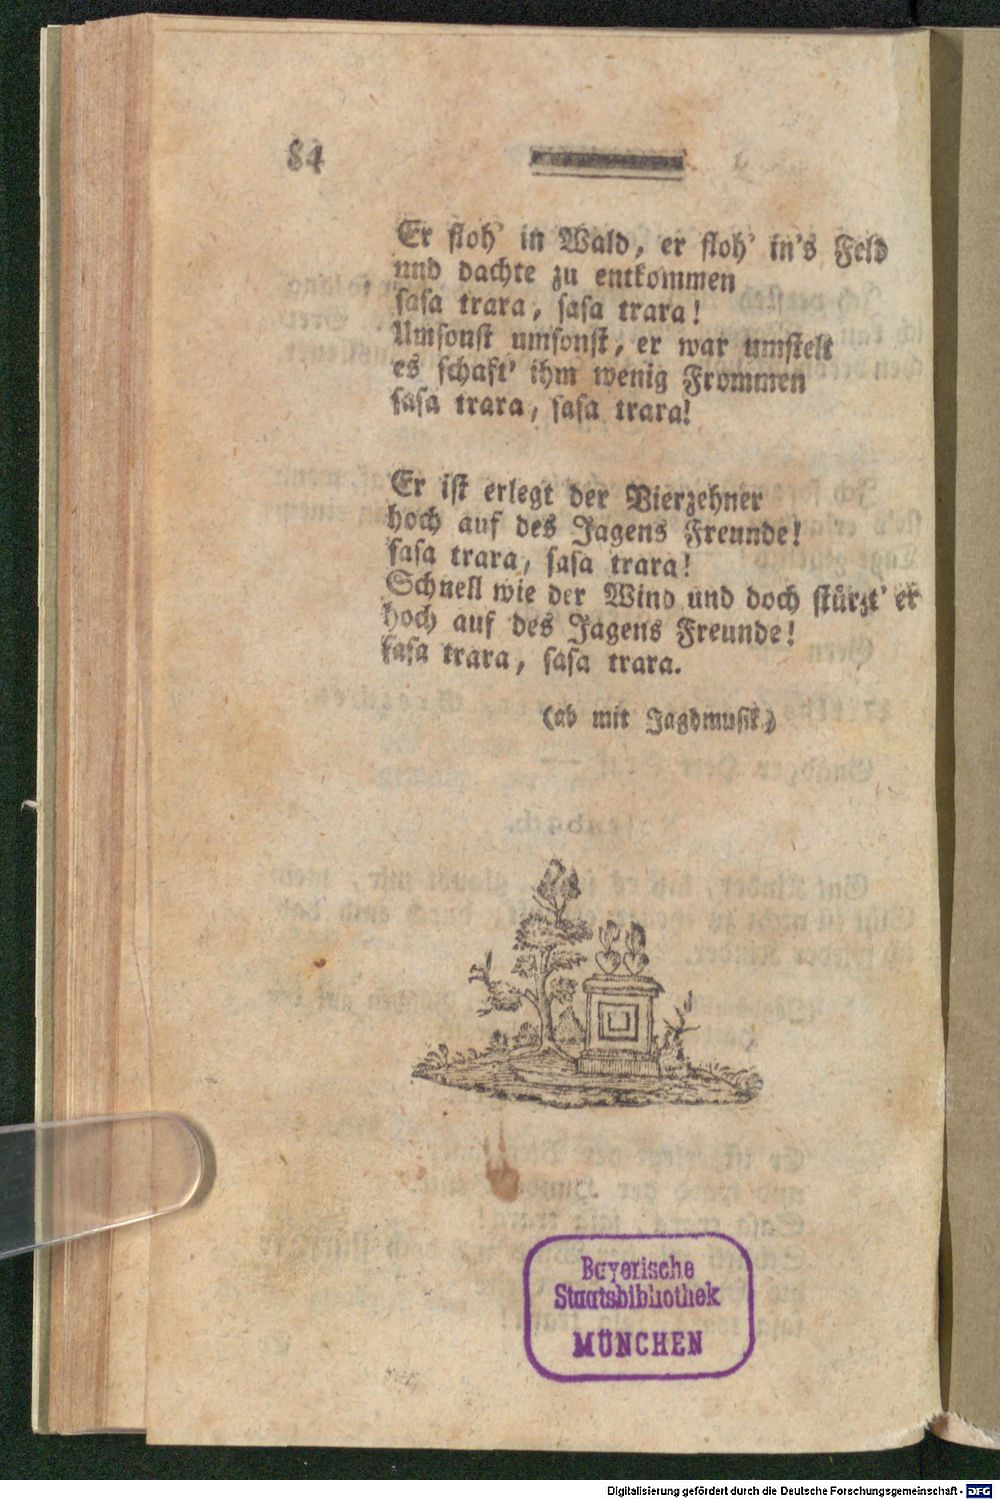 84
Er floh' in Wald, er floh' in's Feld
und dachte zu entkommen
sasa trara, sasa trara!
Umsonst umsonst, er war umstelt
es schaft' ihm wenig Frommen
sasa trara, sasa trara!
Er ist erlegt der Vierzehner
hoch auf des Jagens Freunde!
sasa trara, sasa trara!
Schnell wie der Wind und doch stürzt' er
hoch auf des Jagens Freunde!
sasa trara, sasa trara.
(ab mit Jagdmusik)
Bayerische
Staatsbibliothek
MÜNCHEN
Digitalisierung gefördert durch die Deutsche Forschungsgemeinschaft - DFG